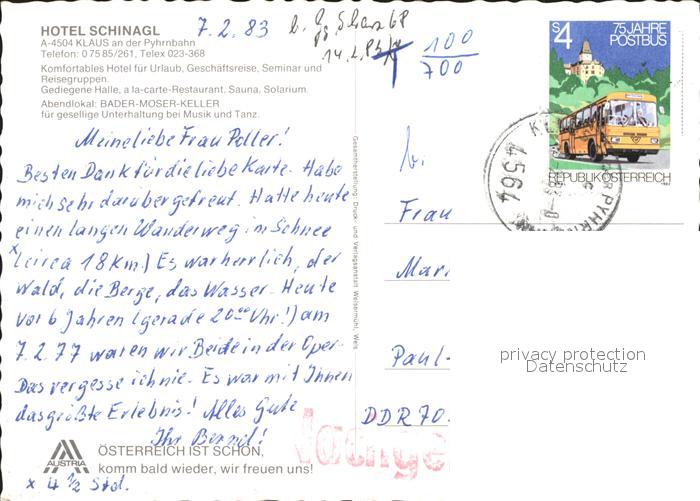 HOTEL SCHINAGL
A-4504 KLAUS an der Pyhrnbahn
Telefon: 0 75 85/261, Telex 023-368
Komfortables Hotel für Urlaub, Geschäftsreise, Seminar und
Reisegruppen.
Gediegene Halle, a la-carte-Restaurant, Sauna, Solarium.
Abendlokal: BADER-MOSER-KELLER
für gesellige Unterhaltung bei Musik und Tanz.
7.2.83
100
700
Meine liebe Frau Poller!
Besten Dank für die liebe Karte. Habe
mich sehr darüber gefreut. Hatte heute
einen langen Wanderweg im Schnee
x (circa 18 Km.) Es war herrlich, der
Wald, die Berge, das Wasser. Heute
vor 6 Jahren (gerade 20⁰⁰ Uhr!) am
7.2.77 waren wir Beide in der Oper.
Das vergesse ich nie. Es war mit Ihnen
das größte Erlebnis! Alles Gute
Ihr
AUSTRIA
ÖSTERREICH IST SCHÖN,
komm bald wieder, wir freuen uns!
x 4 ½ Std.
Gesamtherstellung: Druck- und Verlagsanstalt Welsermühl, Wels
S 4
75 JAHRE
POSTBUS
REPUBLIK ÖSTERREICH
4564
Frau
Mari
Paul-
DDR 70
privacy protection
Datenschutz